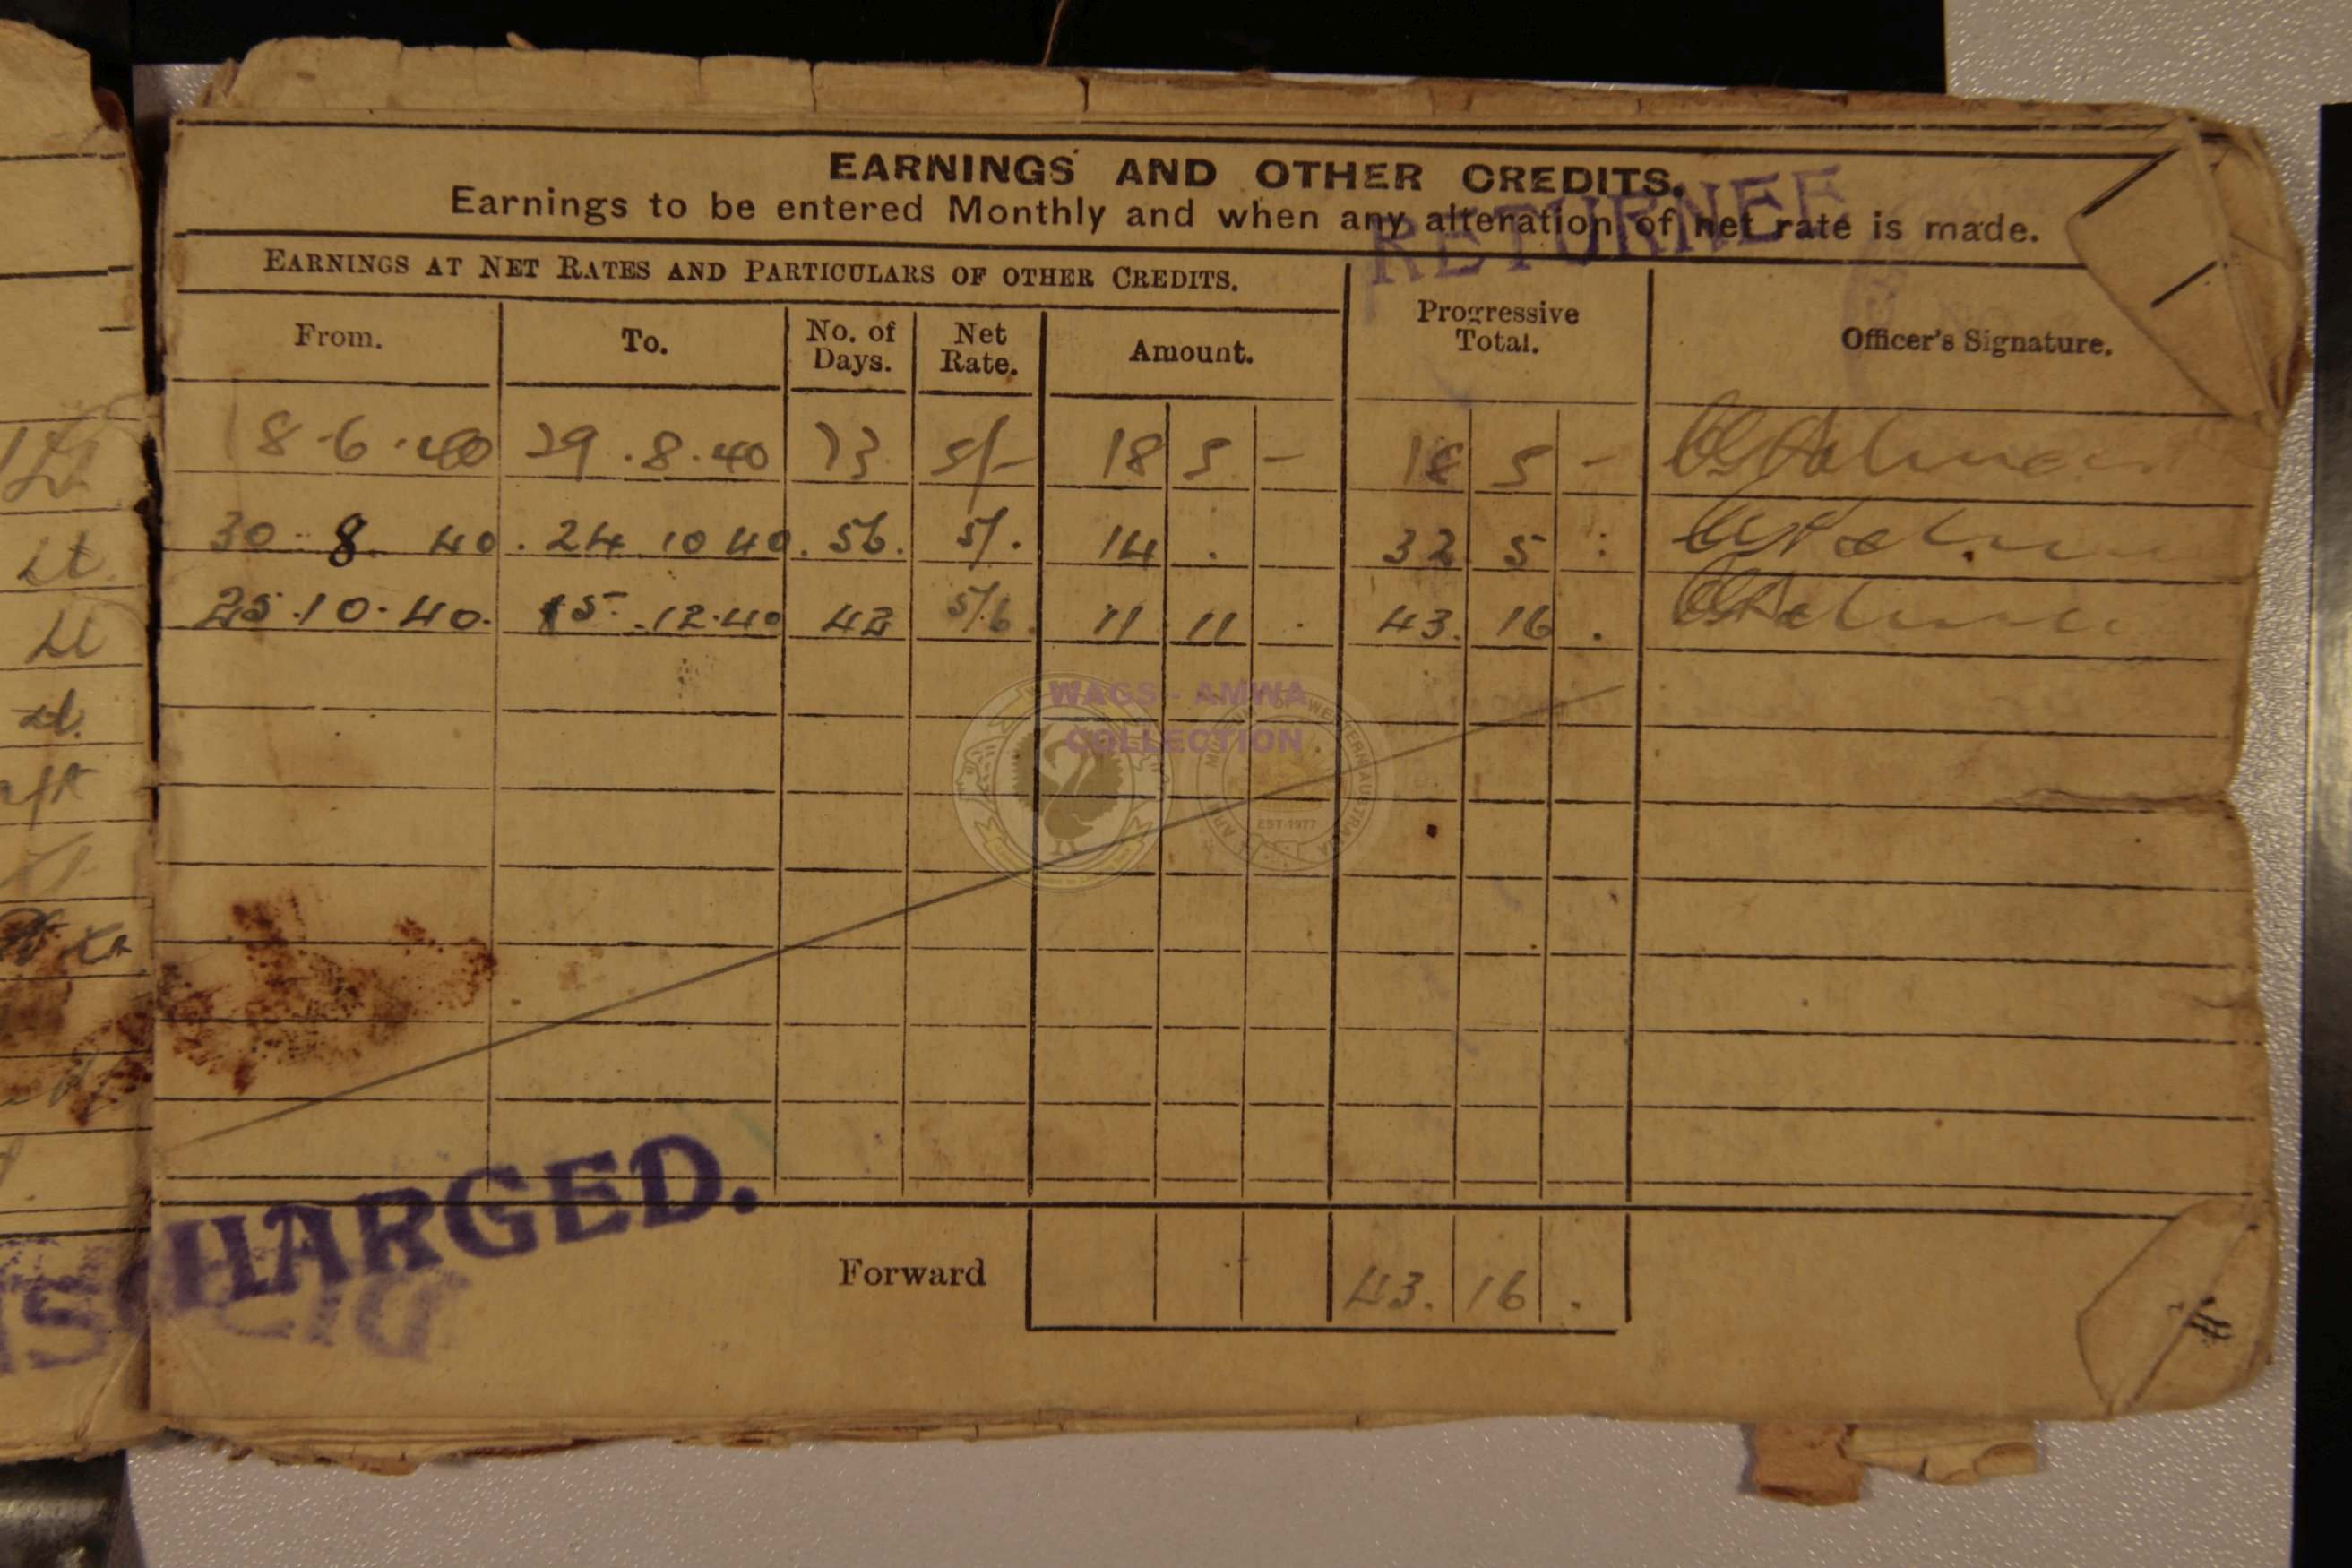 EARNINGS AND OTHER CREDITS.
Earnings to be entered Monthly and when any alteration of net rate is made.
RETURNED
EARNINGS AT NET RATES AND PARTICULARS OF OTHER CREDITS.
Progressive Total.
Officer's Signature.
From. To. No. of Days. Net Rate. Amount.
18-6-40 29.8.40 73 5/- 18 5 - 18 5 -
30 8. 40. 24 10 40. 56. 5/. 14 . 32 5 :
25.10.40. 15.12.40 42 5/6. 11 11 . 43. 16 .
WAGS - AMWA
COLLECTION
EST 1977
HARGED.
Forward 43. 16 .
Lt.